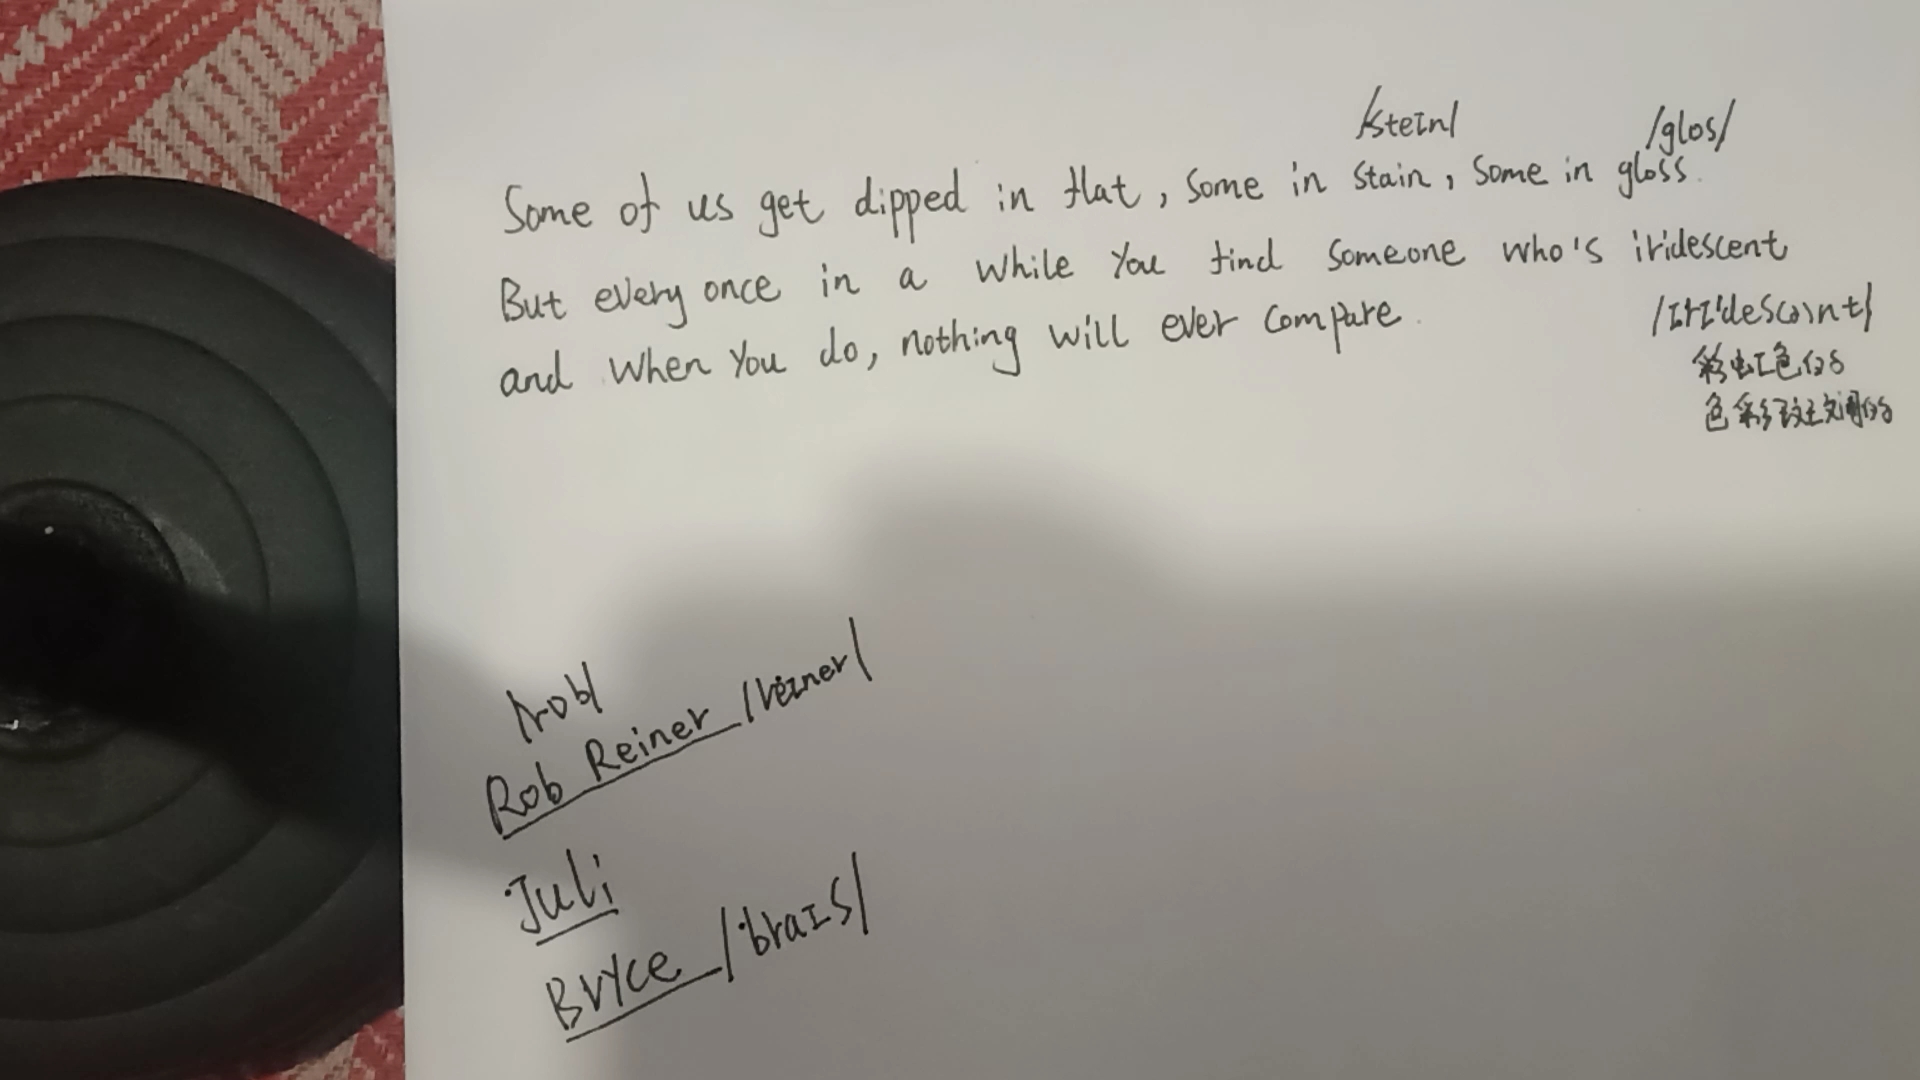 /steɪn/ /glos/
Some of us get dipped in flat, Some in Stain, Some in gloss.
But every once in a while you find Someone who's iridescent
/ɪrɪ'des(ə)nt/
and when you do, nothing will ever compare.
彩虹色的
色彩斑斓的
/rob/
Rob Reiner /reɪner/
Juli
Bryce /braɪs/